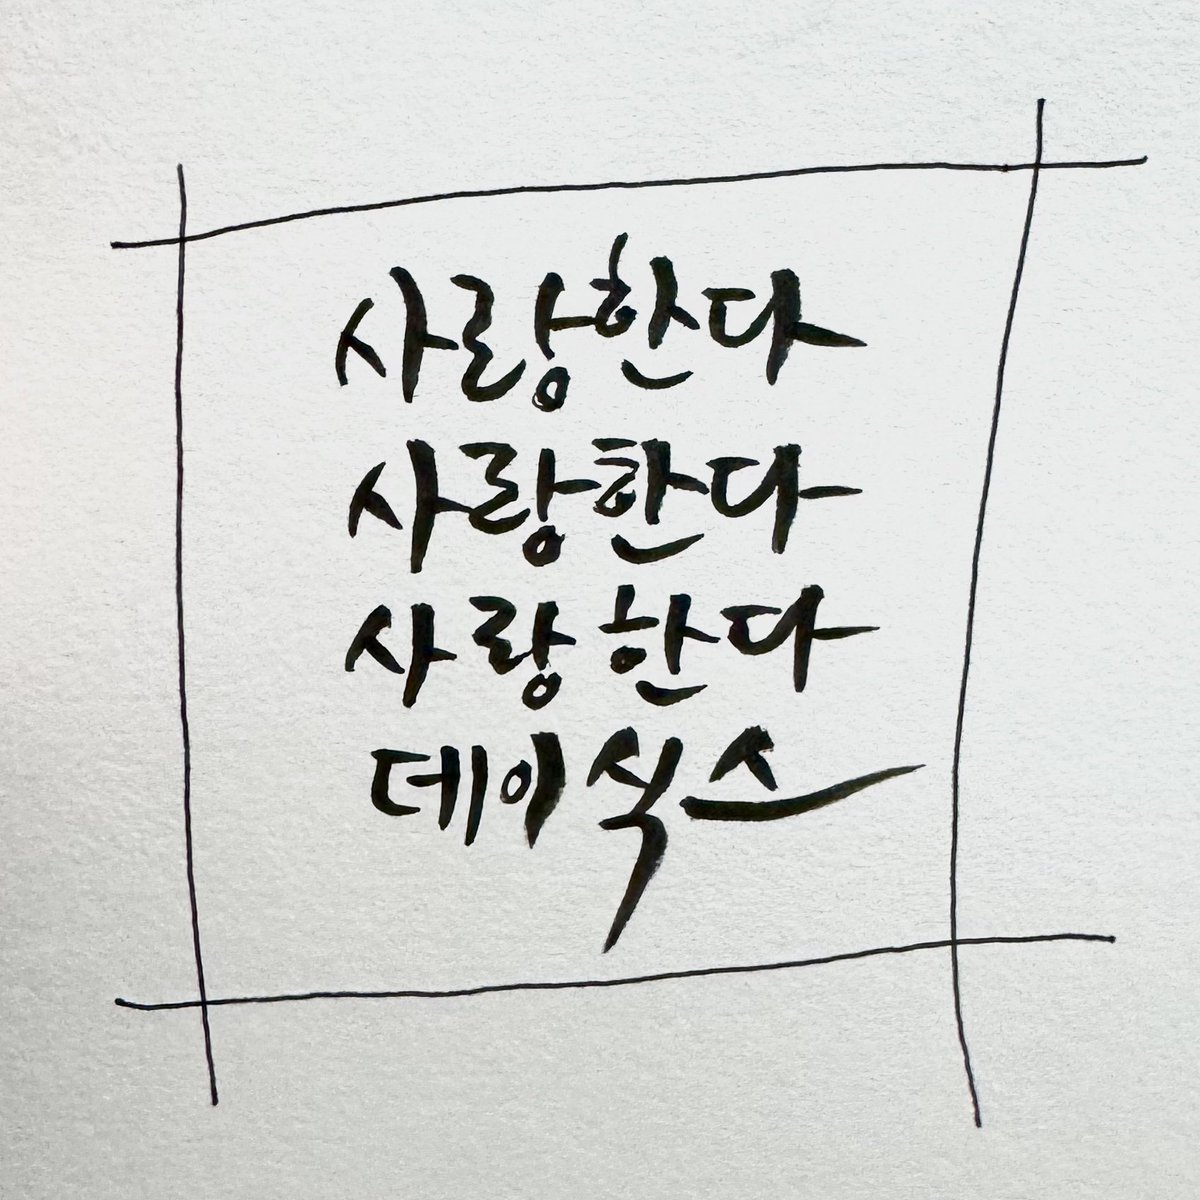 사랑한다
사랑한다
사랑한다
데이식스